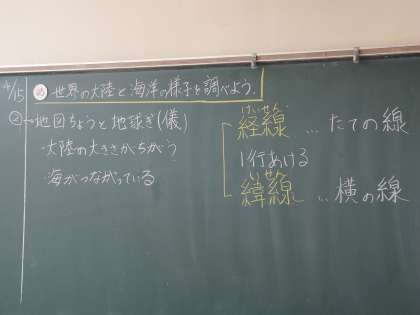 4/15
め 世界の大陸と海洋の様子を調べよう.
②→地図ちょうと地球ぎ(儀)
・大陸の大きさがちがう
・海がつながっている
けいせん
経線 … たての線
1行あける
いせん
緯線 … 横の線